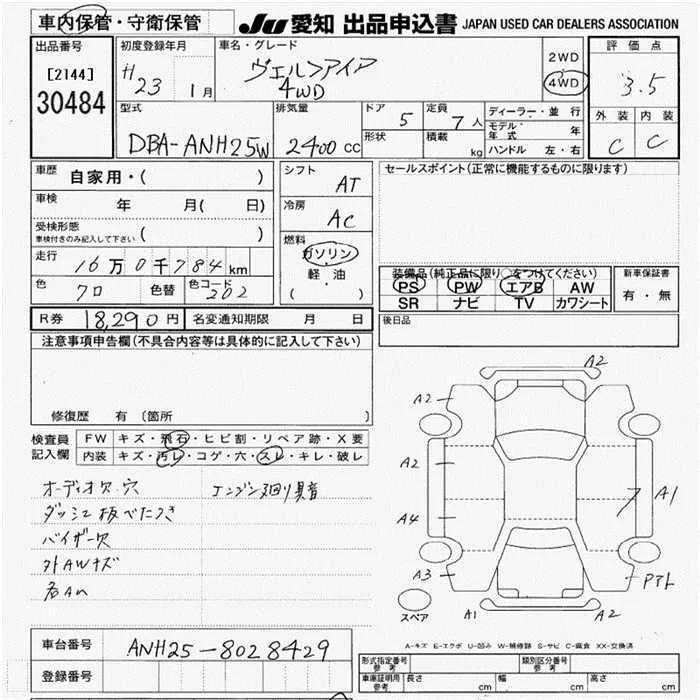 車内保管・守衛保管 JU 愛知 出品申込書 JAPAN USED CAR DEALERS ASSOCIATION
出品番号 初度登録年月 車名・グレード 2WD 評価点
[2144] H23 1月 ヴェルファイア 4WD 3.5
30484 4WD
型式 排気量 ドア 5 定員 7人 ディーラー・並行 外装 内装
DBA-ANH25W 2400cc 形状 積載 kg モデル年式 年 C C
ハンドル 左・右
車歴 自家用・( ) シフト AT セールスポイント(正常に機能するものに限ります)
車検 年 月( 日) 冷房 AC
受検形態 ( )
車検付きのみ記入して下さい
燃料 ガソリン
走行 16万0千784km 軽・油 装備品(純正品に限り○をつけてください) 新車保証書
色 クロ 色替 色コード 202 ( ) PS PW エアB AW 有・無
SR ナビ TV カワシート
R券 18,290円 名変通知期限 月 日 後日品
注意事項申告欄(不具合内容等は具体的に記入して下さい)
修復歴 有(箇所 )
検査員 FW キズ・飛石・ヒビ割・リペア跡・X要
記入欄 内装 キズ・汚レ・コゲ・穴・スレ・キレ・破レ
オーディオ欠・穴 エンジン廻り異音
ダッシュ板べたつき
バイザー欠
外AWキズ
A2
A2
A2 A1
A4
A3
A1 A2
スペア
A-キズ E-エクボ U-凹み W-補修跡 S-サビ C-腐食 XX-交換済
車台番号 ANH25-8028429
登録番号
形式指定番号 参考 類別区分番号 参考
車庫証明用 参考 長さ cm 幅 cm 高さ cm